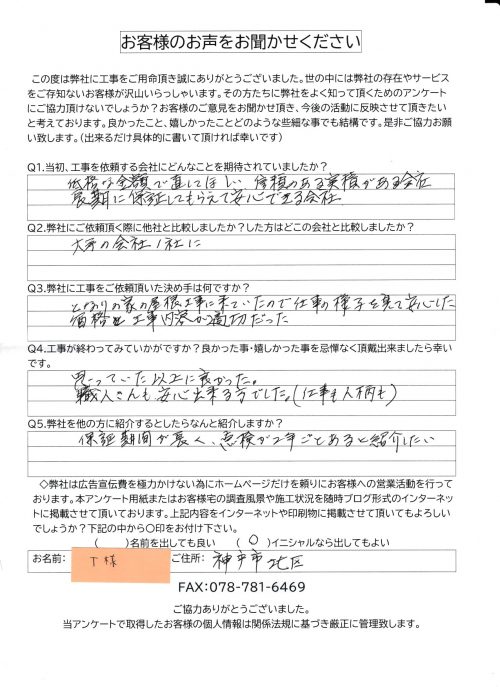 お客様のお声をお聞かせください
この度は弊社に工事をご用命頂き誠にありがとうございました。世の中には弊社の存在やサービス
をご存知ないお客様が沢山いらっしゃいます。その方たちに弊社をよく知って頂くためのアンケート
にご協力頂けないでしょうか？お客様のご意見をお聞かせ頂き、今後の活動に反映させて頂きたい
と考えております。良かったこと、嬉しかったことどのような些細な事でも結構です。是非ご協力お願
い致します。（出来るだけ具体的に書いて頂ければ幸いです）
Q1.当初、工事を依頼する会社にどんなことを期待されていましたか？
低格な金額で直してほしい 信頼のある実積がある会社
長期に保証してもらえて安心できる会社
Q2.弊社にご依頼頂く際に他社と比較しましたか？した方はどこの会社と比較しましたか？
大手の会社1社に
Q3.弊社に工事をご依頼頂いた決め手は何ですか？
となりの家の屋根工事に来ていたので仕事の様子を見て安心した
価格と工事内容が適切だった
Q4.工事が終わってみていかがですか？良かった事・嬉しかった事を忌憚なく頂戴出来ましたら幸い
です。
思っていた以上に良かった。
職人さんも安心出来る方でした。（仕事も人柄も）
Q5.弊社を他の方に紹介するとしたらなんと紹介しますか？
保証期間が長く、点検が2年ごとあると紹介したい
◇弊社は広告宣伝費を極力かけない為にホームページだけを頼りにお客様への営業活動を行って
おります。本アンケート用紙またはお客様宅の調査風景や施工状況を随時ブログ形式のインターネッ
トに掲載させて頂いております。上記内容をインターネットや印刷物に掲載させて頂いてもよろしい
でしょうか？下記の中から〇印をお付け下さい。
（ ）名前を出しても良い （ ○ ）イニシャルなら出してもよい
お名前： T様 ご住所： 神戸市 北区
FAX：078-781-6469
ご協力ありがとうございました。
当アンケートで取得したお客様の個人情報は関係法規に基づき厳正に管理致します。